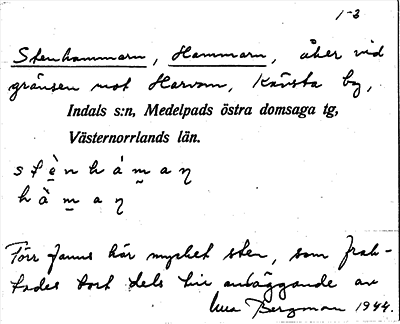 1-3
Stenhammarn, Hammarn, åker vid
gränsen mot Harvom, Kävsta by,
Indals s:n, Medelpads östra domsaga tg,
Västernorrlands län.
stè̱nhám̱aꞑ
hàm̱aꞑ
Förr fanns här mycket sten, som frak-
tades bort dels till anläggande av
Bergman 1944.